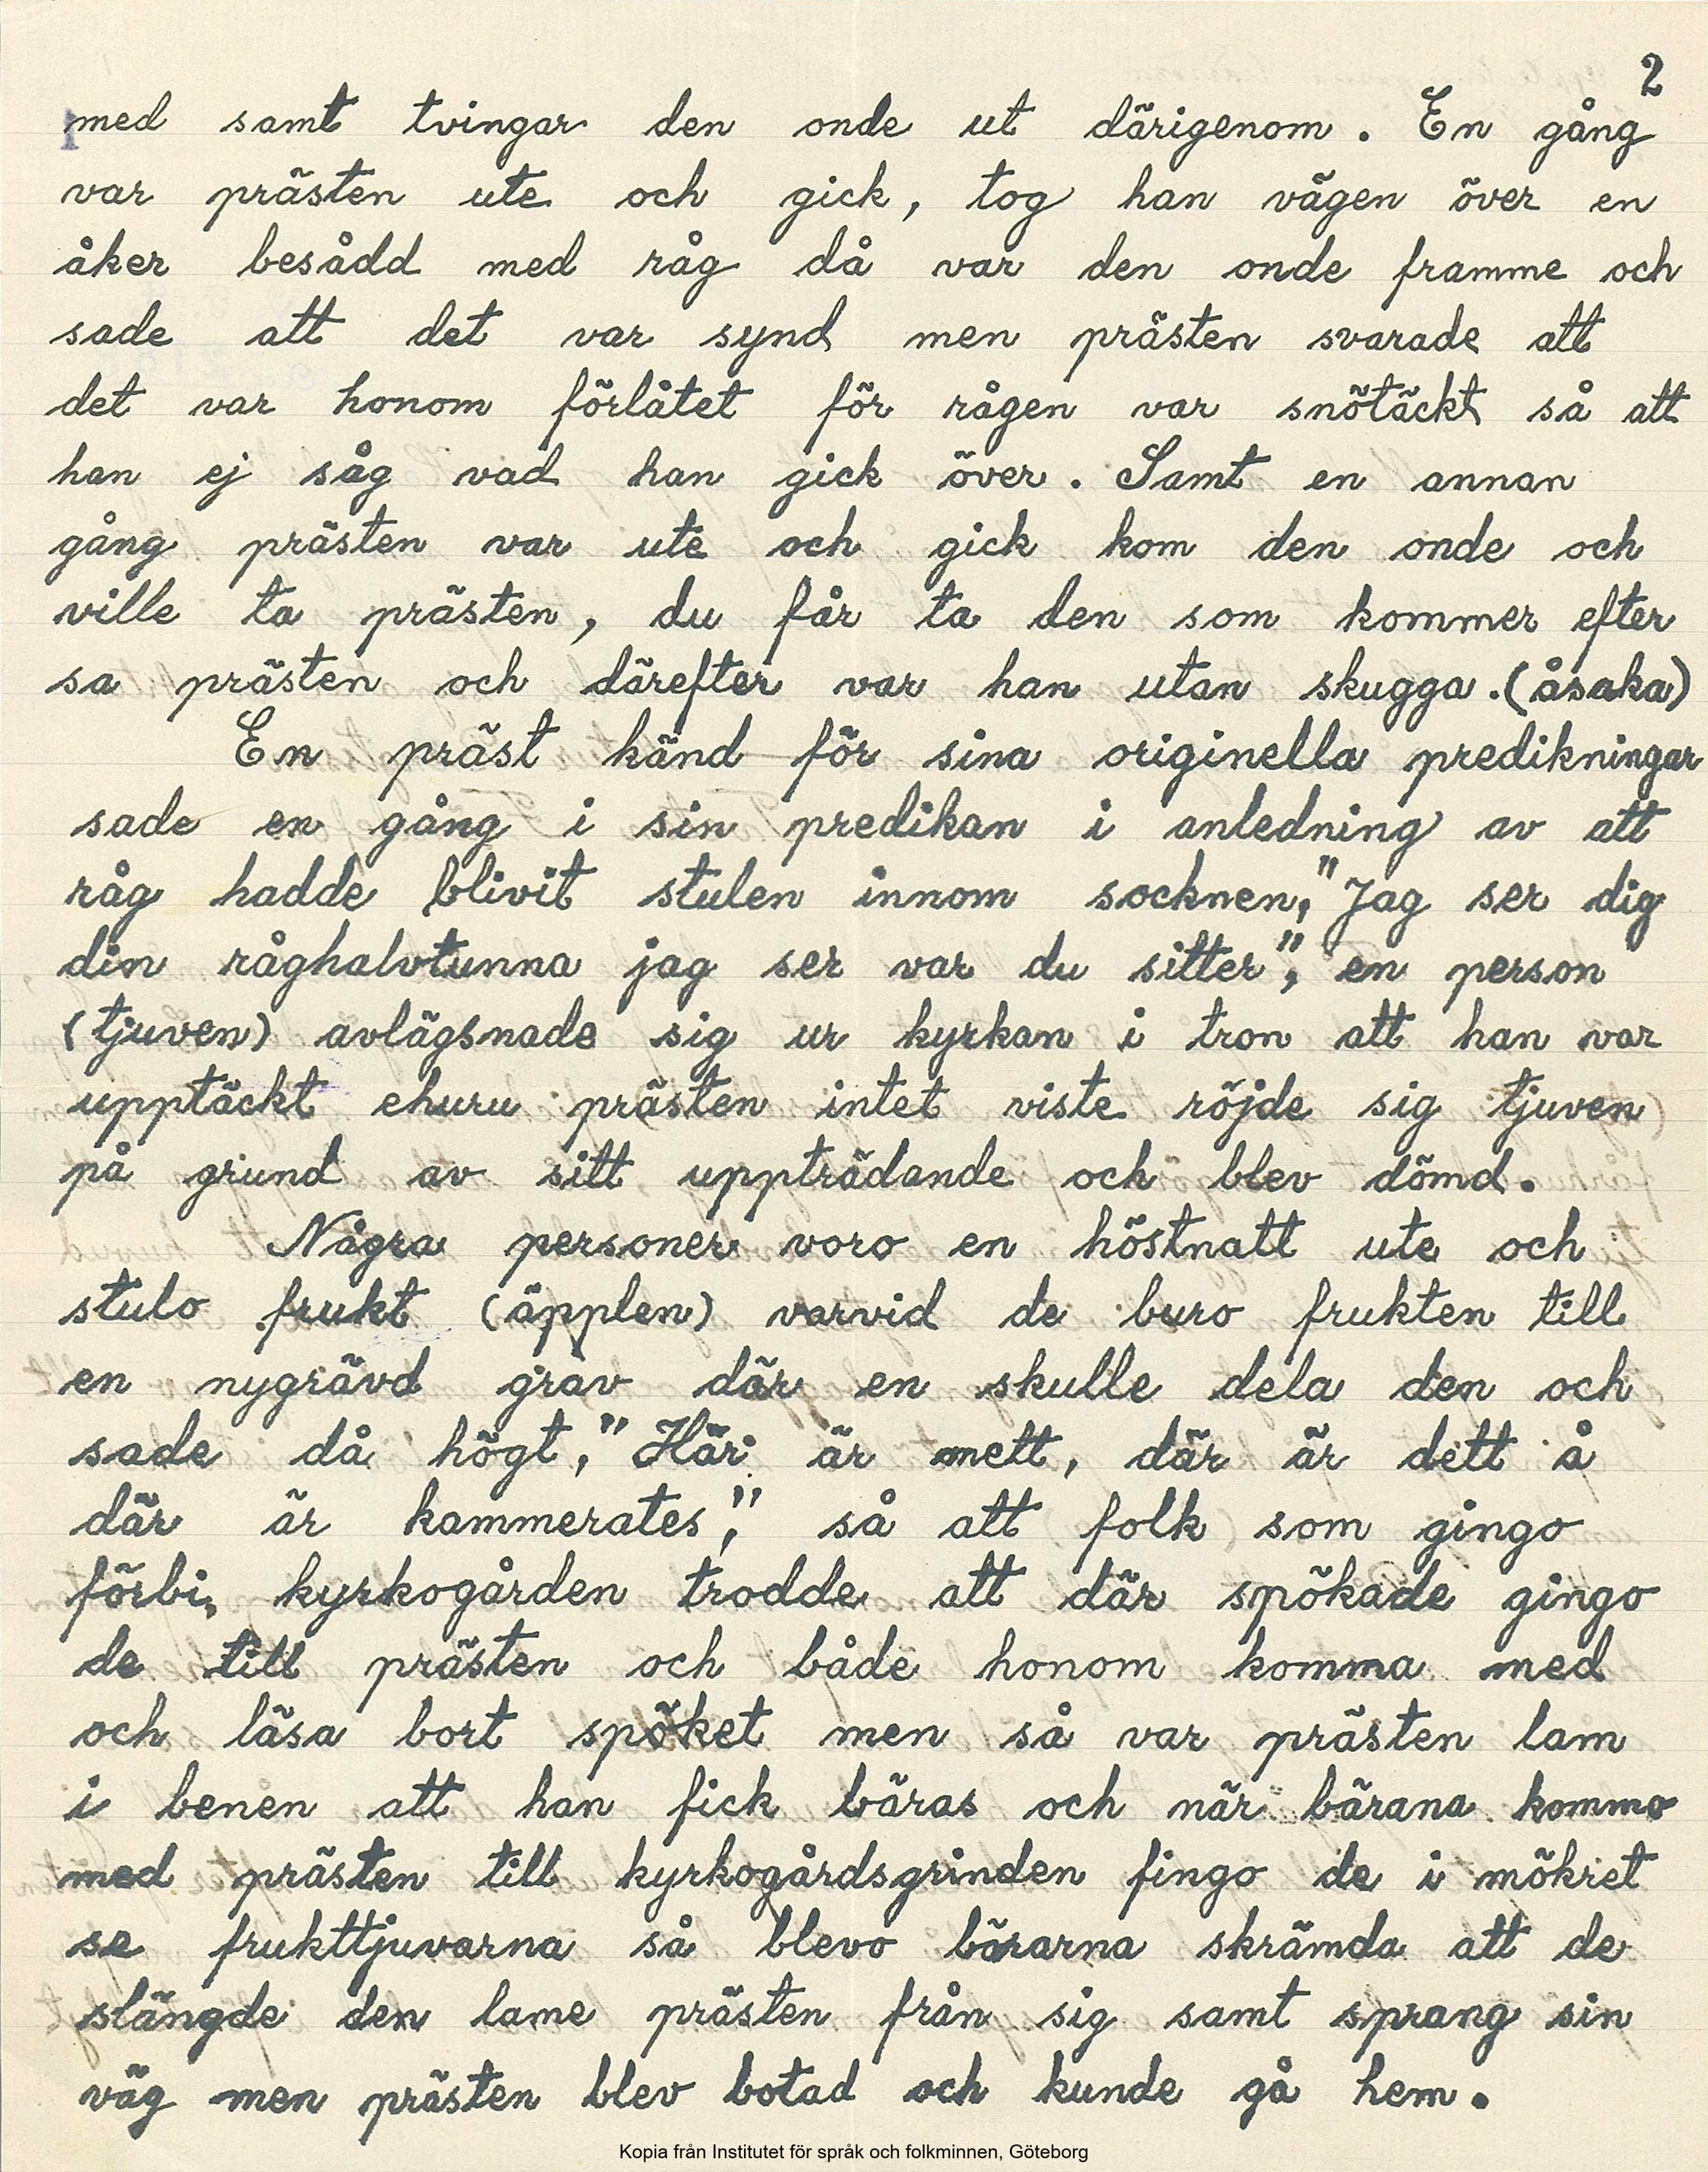 2
med samt tvingar den onde ut därigenom. En gång
var prästen ute och gick, tog han vägen över en
åker besådd med råg då var den onde framme och
sade att det var synd men prästen svarade att
det var honom förlåtet för rågen var snötäckt så att
han ej såg vad han gick över. Samt en annan
gång prästen var ute och gick kom den onde och
ville ta prästen, du får ta den som kommer efter
sa prästen och därefter var han utan skugga. (åsaka)
En präst känd för sina originella predikningar
sade en gång i sin predikan i anledning av att
råg hadde blivit stulen innom socknen, "Jag ser dig
din råghalvtunna jag ser var du sitter", en person
(tjuven) avlägsnade sig ur kyrkan i tron att han var
upptäckt ehuru prästen intet viste röjde sig tjuven
på grund av sitt uppträdande och blev dömd.
Några personer voro en höstnatt ute och
stulo frukt (äpplen) varvid de buro frukten till
en nygrävd grav där en skulle dela den och
sade då högt, "Här är mett, där är dett å
där är kammerates", så att folk som gingo
förbi, kyrkogården trodde att där spökade gingo
de till prästen och både honom komma med
och läsa bort spöket men så var prästen lam
i benen att han fick bäras och när bärana kommo
med prästen till kyrkogårdsgrinden fingo de i mökret
se frukttjuvarna så blevo bärarna skrämda att de
slängde den lame prästen från sig samt sprang sin
väg men prästen blev botad och kunde gå hem.
Kopia från Institutet för språk och folkminnen, Göteborg